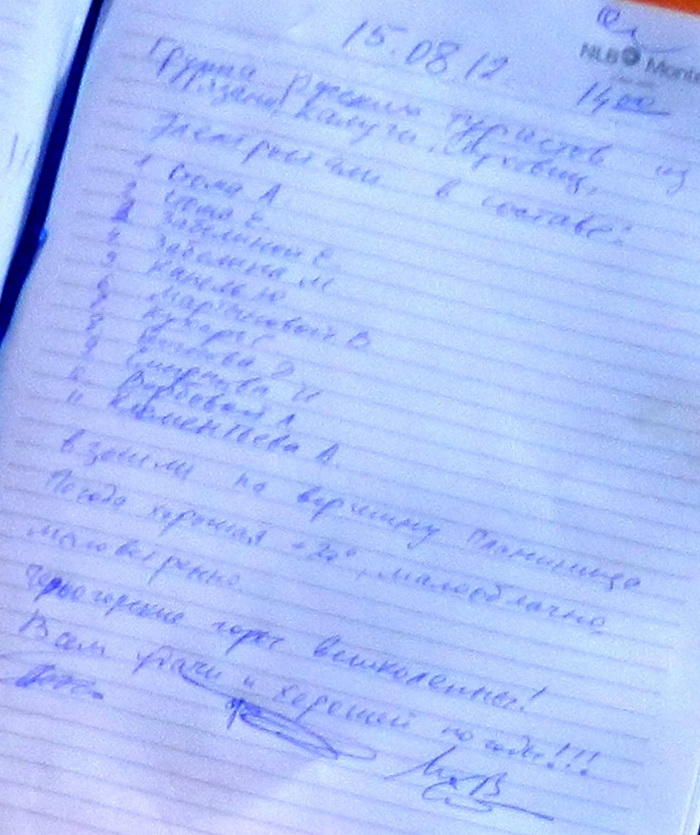 15.08.12
NLB Monte
14 00
Группа русских туристов из
Рязани, Калуги,
Электростали в составе:
1 Стома А.
2 Стома Е.
3 Забелиной Е.
4 Забелина М
5 Капель Ю
6 Мартыновой В
7
8
9 Смирнова И
10
11 Клементьева А.
взошли на вершину Планиница
Погода хорошая +20°, малооблачно,
маловетренно.
Черногорские горы великолепны!
Вам удачи и хорошей погоды!!!